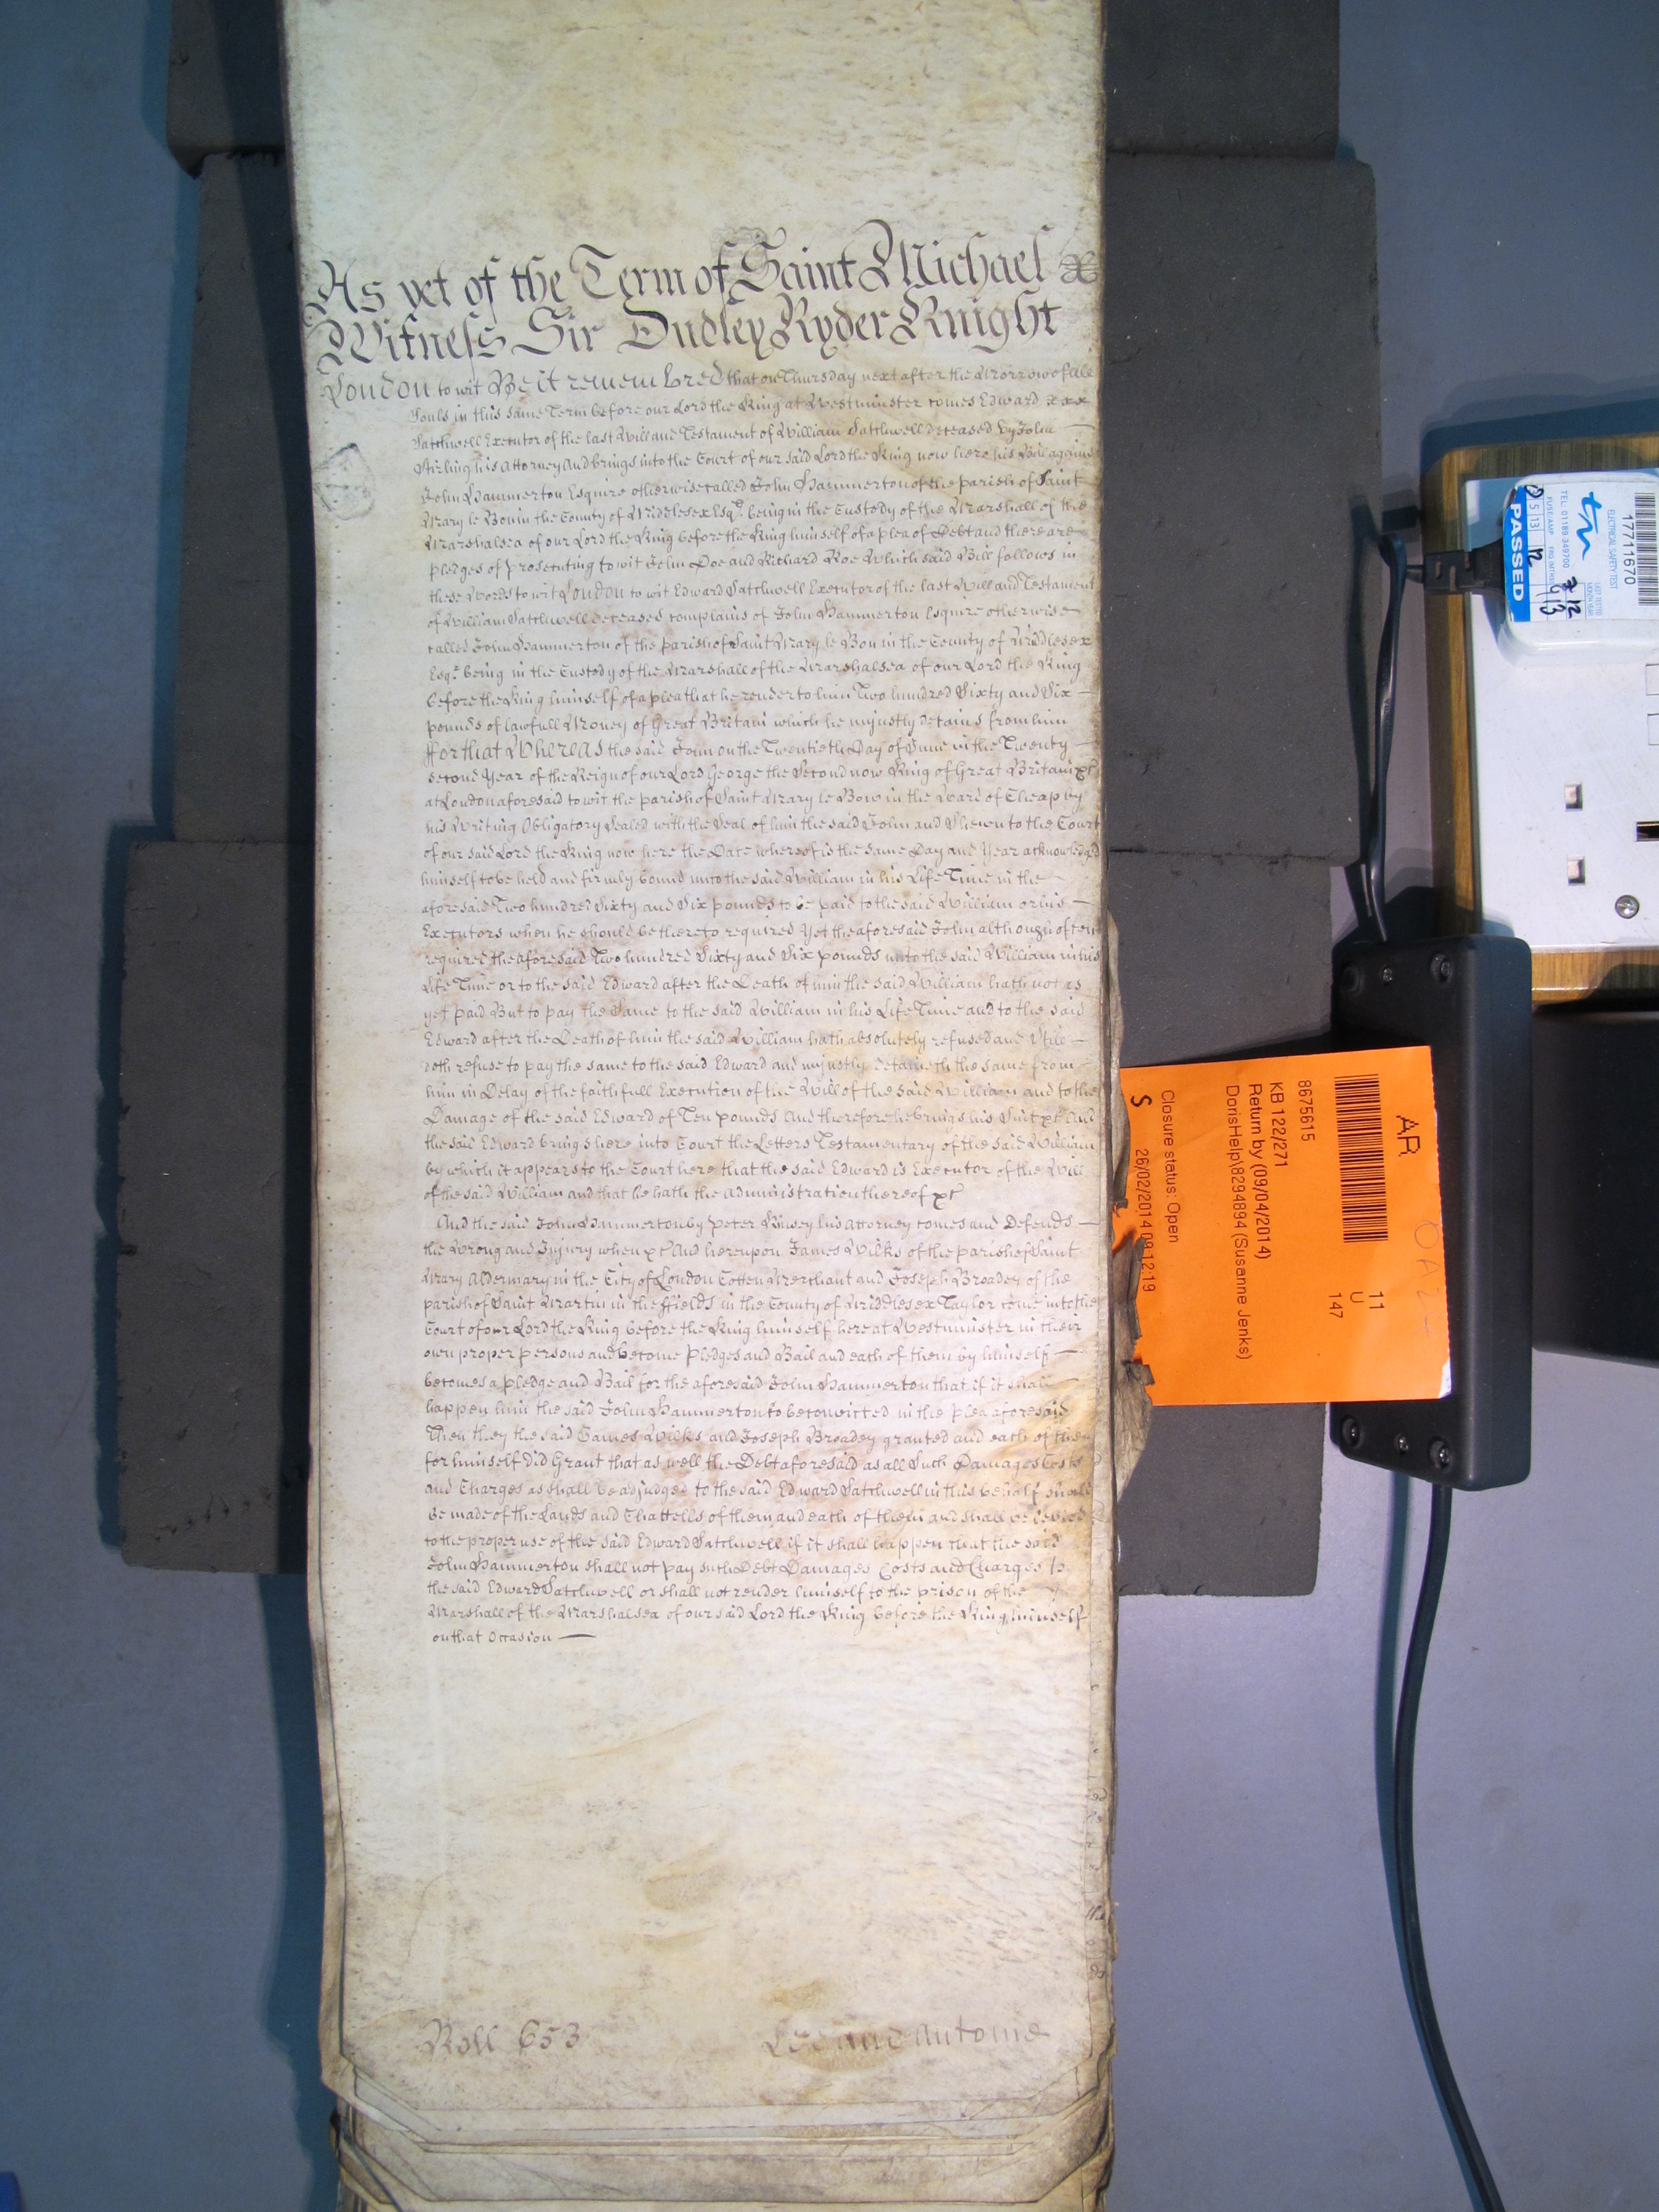 As yet of the Term of Saint Michael
Witness Sir Dudley Ryder Knight
London to wit Be it remembred that on Thursday next after the Morrow of All
Souls in this same Term before our Lord the King at Westminster comes Edward
Satchwell Executor of the last Will and Testament of William Satchwell deceased by John
Stirling his Attorney And brings into the Court of our said Lord the King now here his Bill against
John Hammerton Esquire otherwise called John Hammerton of the parish of Saint
Mary le Bon in the County of Middlesex Esqr. being in the Custody of the Marshall of the
Marshalsea of our Lord the King before the King himself of a plea of Debt and there are
pledges of prosecuting to wit John Doe and Richard Roe Which said Bill follows in
these Words to wit London to wit Edward Satchwell Executor of the last Will and Testament
of William Satchwell deceased complains of John Hammerton Esquire otherwise
called John Hammerton of the parish of Saint Mary le Bon in the County of Middlesex
Esqr. being in the Custody of the Marshall of the Marshalsea of our Lord the King
before the King himself of a plea that he render to him Two hundred Sixty and Six
pounds of lawfull Money of Great Britain which he unjustly detains from him
ffor that Whereas the said John on the Twentieth Day of June in the Twenty
second Year of the Reign of our Lord George the Second now King of Great Britain &c
at London aforesaid to wit the parish of Saint Mary le Bow in the Ward of Cheap by
his Writing Obligatory Sealed with the Seal of him the said John and Shewn to the Court
of our said Lord the King now here the Date whereof is the same Day and Year acknowledged
himself to be held and firmly bound unto the said William in his Life Time in the
aforesaid Two hundred Sixty and Six pounds to be paid to the said William or his
Executors when he should be thereto required Yet the aforesaid John although often
required the aforesaid Two hundred Sixty and Six pounds unto the said William in his
Life Time or to the said Edward after the Death of him the said William hath not as
yet paid But to pay the Same to the said William in his Life Time and to the said
Edward after the Death of him the said William hath absolutely refused and Still
doth refuse to pay the same to the said Edward and unjustly detaineth the same from
him in Delay of the faithfull Execution of the Will of the said William and to the
Damage of the said Edward of Ten pounds And therefore he brings his Suit &c And
the said Edward brings here into Court the Letters Testamentary of the said William
by which it appears to the Court here that the said Edward is Executor of the Will
of the said William and that he hath the Administration thereof &c
And the said John Hammerton by Peter his Attorney comes and Defends
the Wrong and Injury when &c And hereupon James Wilks of the parish of Saint
Mary Aldermary in the City of London Cotten Merchant and Joseph Broadey of the
parish of Saint Martin in the ffields in the County of Middlesex Taylor come into the
Court of our Lord the King before the King himself here at Westminster in their
own proper persons and become Pledges and Bail and each of them by himself
becomes a pledge and Bail for the aforesaid John Hammerton that if it shall
happen him the said John Hammerton to be convicted in the plea aforesaid
Then they the said James Wilks and Joseph Broadey granted and each of them
for himself did Grant that as well the Debt aforesaid as all Such Damages Costs
and Charges as shall be adjudged to the said Edward Satchwell in this behalf shall
be made of the Lands and Chattells of them and each of them and shall be levied
to the proper use of the said Edward Satchwell if it shall happen that the said
John Hammerton shall not pay such Debt Damages Costs and Charges to
the said Edward Satchwell or shall not render himself to the prison of the
Marshall of the Marshalsea of our said Lord the King before the King himself
on that Occasion
Roll 653
Lee and Antonie
AR
11
U
147
8675615
KB 122/271
Return by (09/04/2014)
DorisHelp\8294894 (Susanne Jenks)
Closure status: Open
S
26/02/2014 09:12:19
17711670
ELECTRICAL SAFETY TEST
TEL: 01189 349700
PASSED